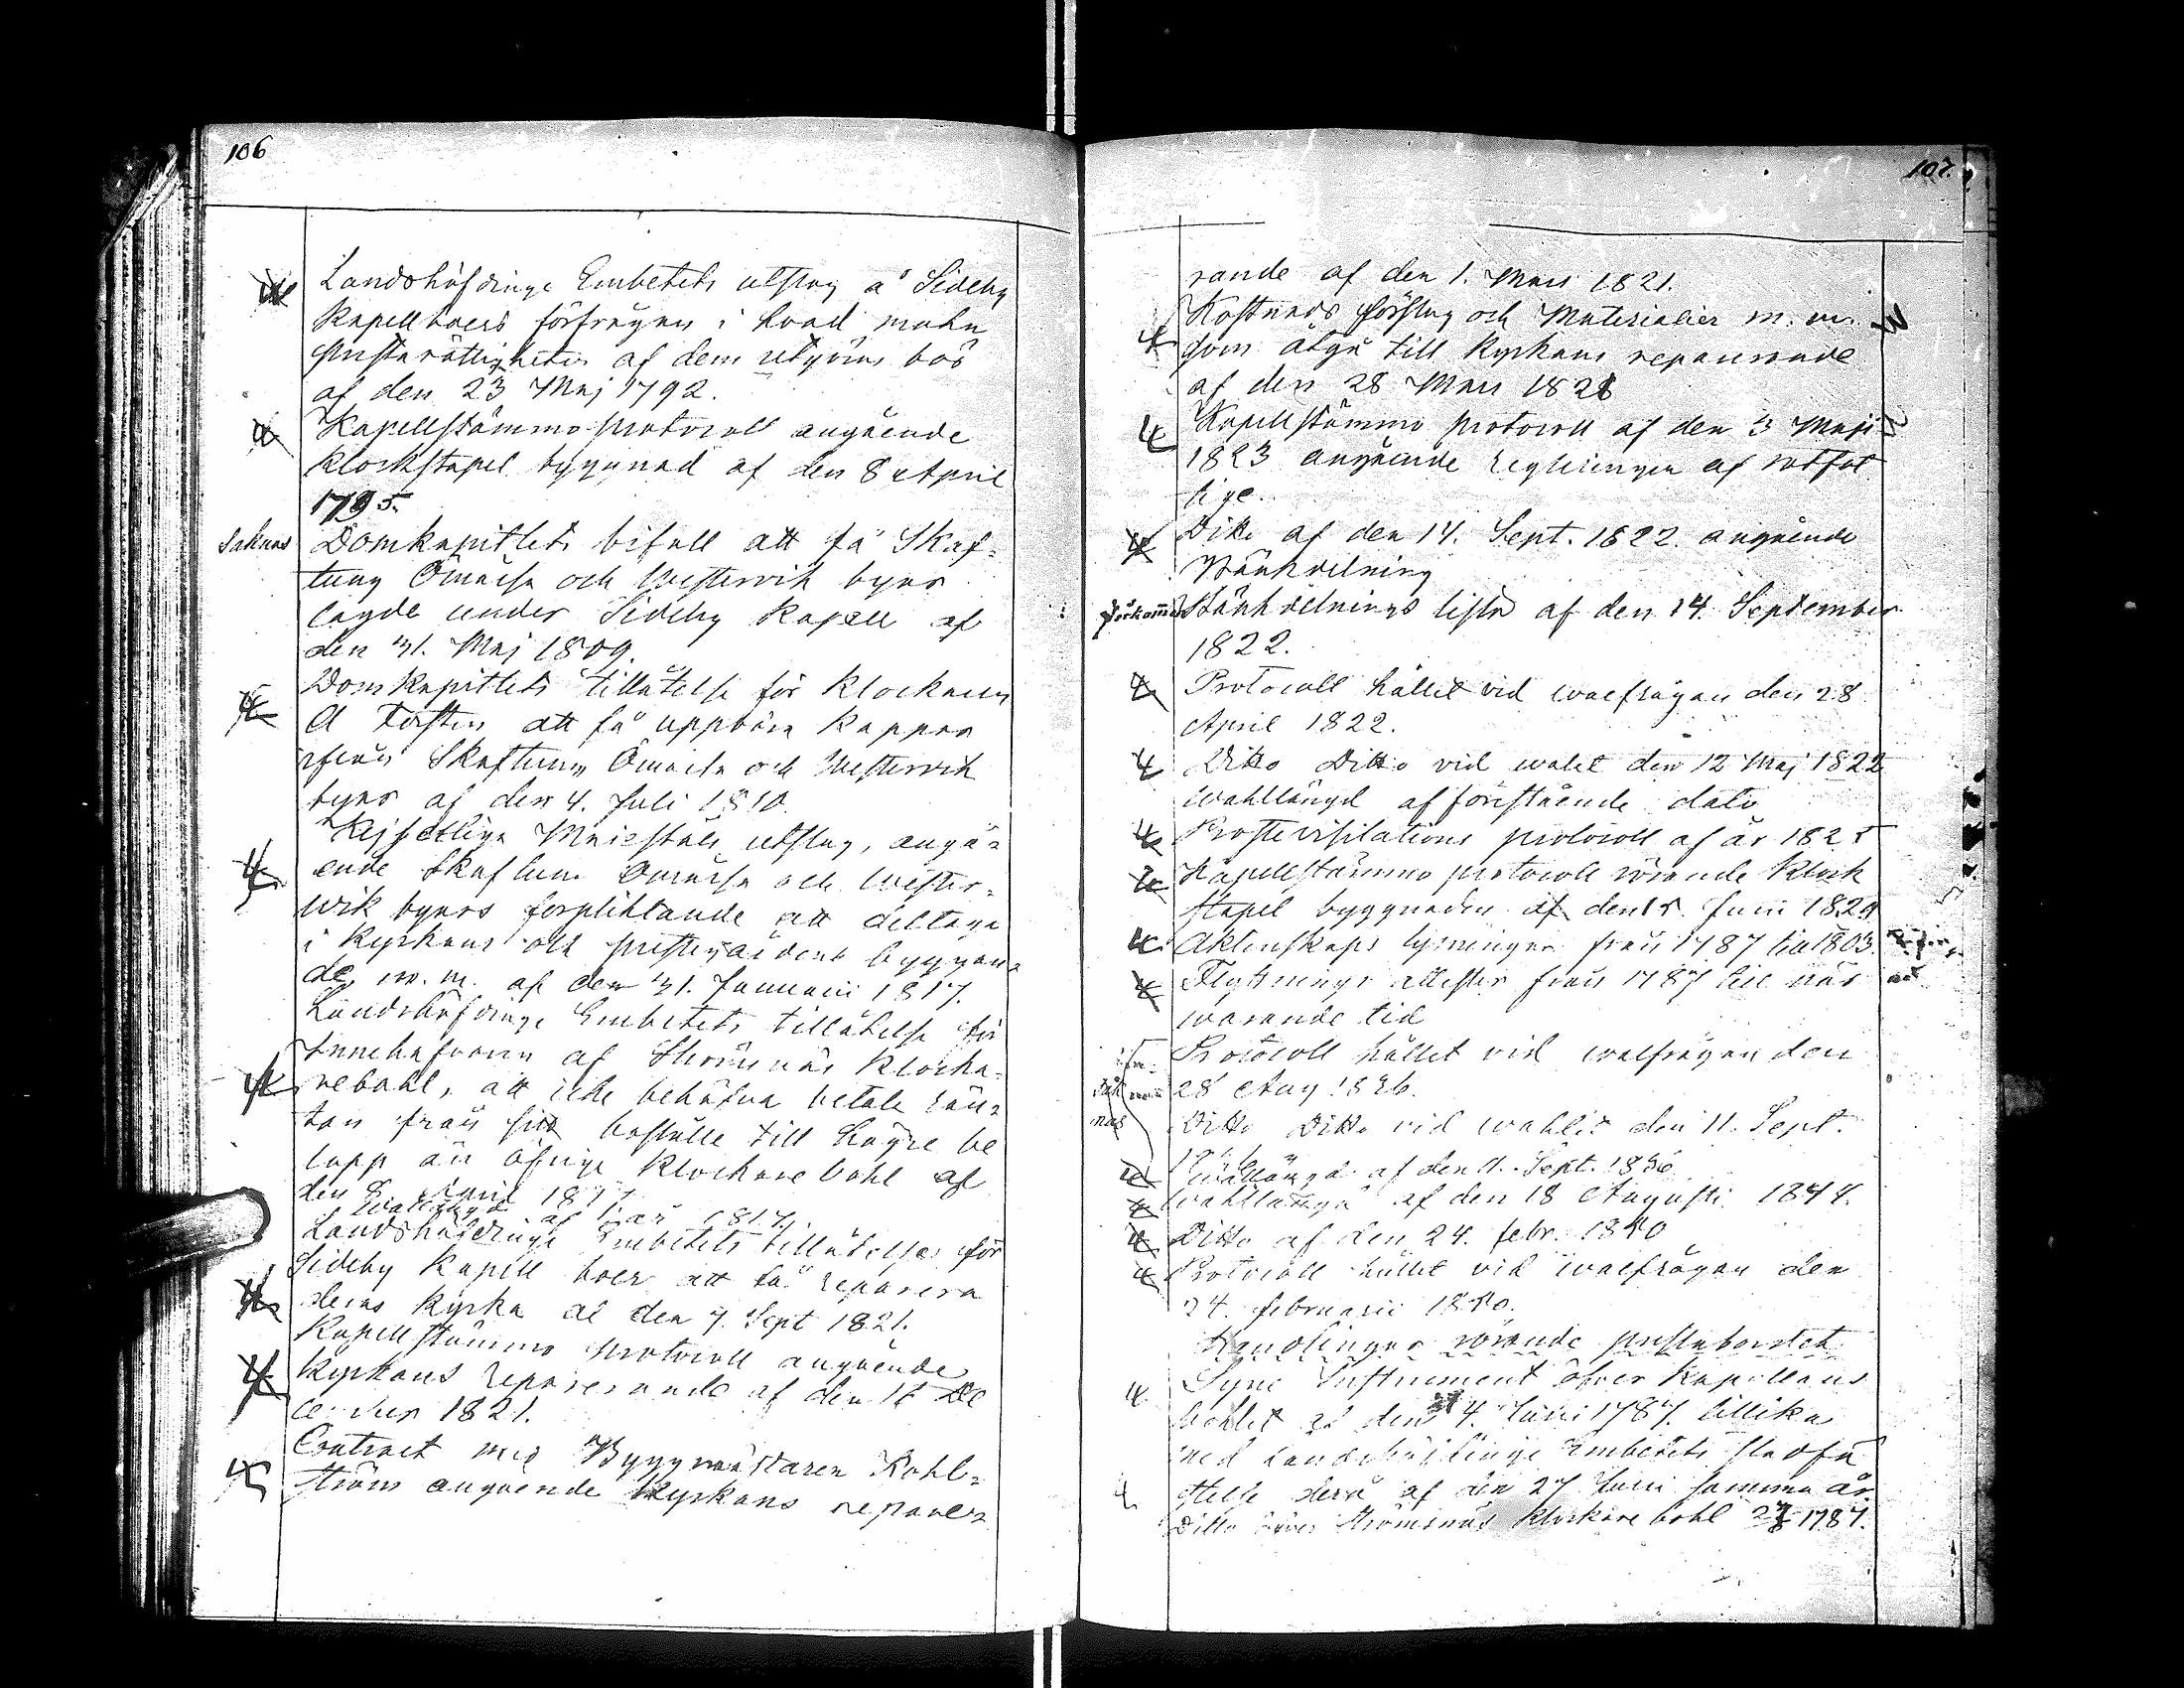 106
Landshöfdinge Embetets utslag å Sideby
Kapellboers förfrågan i hvad mohn
prästarättigheter af dem utgöras bör
af den 23 Maj 1792.
Kapellstämmo protocoll angående
klockstapel byggnad af den 8 April
1795.
Saknas Domkapitlets bifall att få Skaf-
tung Ömossa och Westervik byar
lagde under Sideby Kapell af
den 31. Maj 1809.
Domkapitlets tillåtelse för Klockaren
A Torsten att få uppbära kappar
ifrån Skaftung Ömossa och Westervik
byar af den 4. Juli 1810.
Kejserliga Majestäts utslag, angå-
ende Skaftung Ömossa och Wester-
wik byars förpliktande att deltaga
i kyrkans och prestgårdens byggan-
de, m. m. af den 31. Januarii 1817.
Landshöfdinge Embetets tillåtelse för
Innehafvaren af Strömsnäs Klocka-
rebohl, att icke behöfva betala rän-
tan från sitt boställe till högre be
lopp än öfrige Klockare bohl af
den 8 April 1817.
Wallängd af år 1817.
Landshöfdinge Embetets tillåtelse för
Sideby Kapell boer att få reparera
deras kyrka af den 7. Sept 1821.
Kapellstämmo protocoll angående
kyrkans reparerande af den 16 De
cember 1821.
Contract med Byggmästaren Kohl-
ström angående kyrkans reparer-
107.
rande af den 1. Mars 1821.
Kostnads förslag och Materialier m. m.
som åtgå till kyrkans reparerande
af den 28 Mars 1821
Kapellstämmo protocoll af den 3 Maji
1823 angående regleringen af rotfat
tige.
Ditto af den 14. Sept. 1822 angående
Bänkdelning
Förkommen Bänkdelnings lista af den 14. September
1822.
Protocoll hållit vid walfrågan den 28
April 1822.
Ditto Ditto vid walet den 12 Maj 1822
Wahllängd af föregående dato
Prostevisitations protocoll af år 1825
Kapellstämmo protocoll rörande Klock
stapel byggnaden af den 15. Juni 1829
Äktenskaps lysningar från 1787 till 1803.
Flyttnings attester från 1787 till när
warande tid
Protocoll hållit vid walfrågan den
28 Aug 1836.
Ditto Ditto vid wahlet den 11. Sept.
1836
Wallängd af den 11. Sept. 1836
Wahllängd af den 18 Augusti 1844.
Ditto af den 24. febr. 1840
Protocoll hållit vid walfrågan den
24. februarii 1840.
Handlingar rörande prestabordet
Syne Instrument öfver Kapellans
bohlet af den 4. Junii 1787. tillika
med Landshöfdinge Embetets stadfä
stelse derå af den 27 Junii samma år
Ditto öfver Strömsnäs klockare bohl 1787.